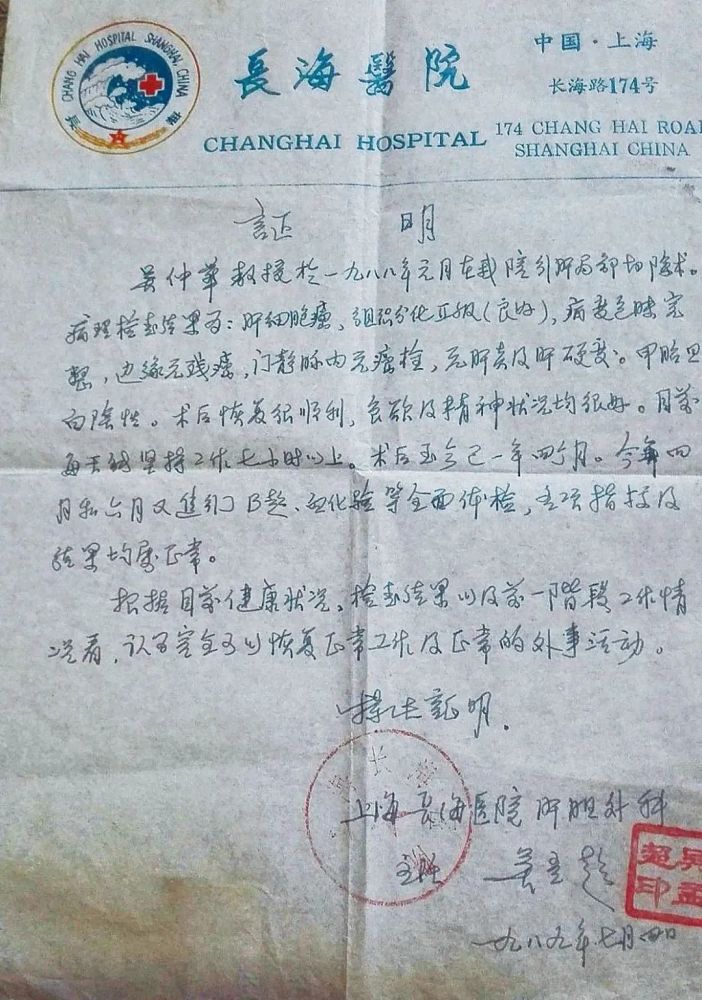 CHANG HAI HOSPITAL SHANGHAI CHINA
長海醫院
中国·上海
长海路174号
CHANGHAI HOSPITAL
174 CHANG HAI ROA
SHANGHAI CHINA
証明
吴仲华教授於一九八八年元月在我院引肝局部切除术。
病理检查结果为：肝细胞癌，组织分化Ⅱ级（良好），病变包膜完
整，边缘无残癌，门静脉内无癌栓，无肝炎及肝硬变。甲胎旦
白阴性。术后恢复很顺利，食欲及精神状况均很好。目前
每天能坚持工作七小时以上。术后至今已一年四个月。今年四
月和六月又进行B超、血化验等全面体检，各项指标及
结果均属正常。
根据目前健康状况，检查结果以及前一阶段工作情
况看，认为完全可以恢复正常工作及正常的外事活动。
特此証明.
上海長海医院肝胆外科
主任 吴孟超
吴孟超印
一九八九年七月四日